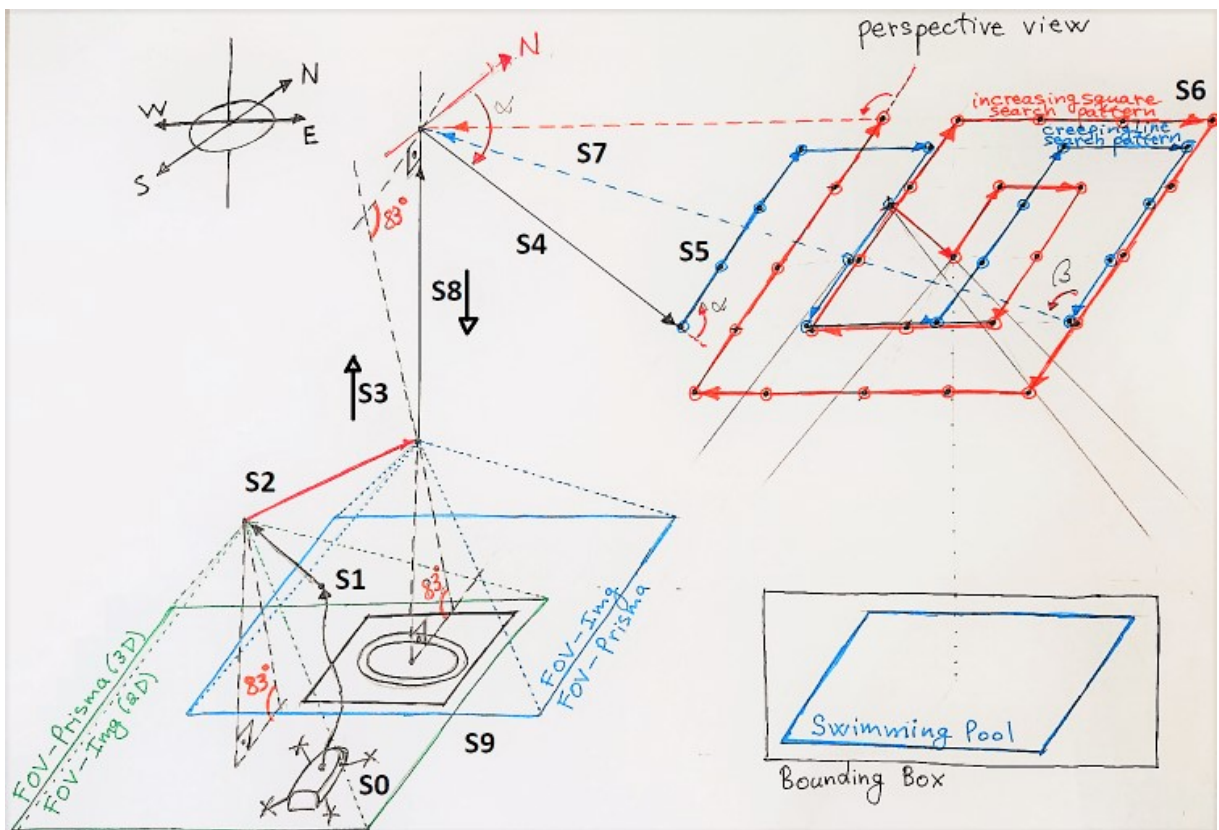 perspective view
N
W
E
S
N
α
increasing square
search pattern
S6
creeping line
search pattern
S7
83°
S4
S5
α
β
S8
S3
S2
S1
83°
83°
FOV-Img
FOV-Prisma
FOV-Prisma (3D)
FOV-Img (2D)
S9
S0
Swimming Pool
Bounding Box